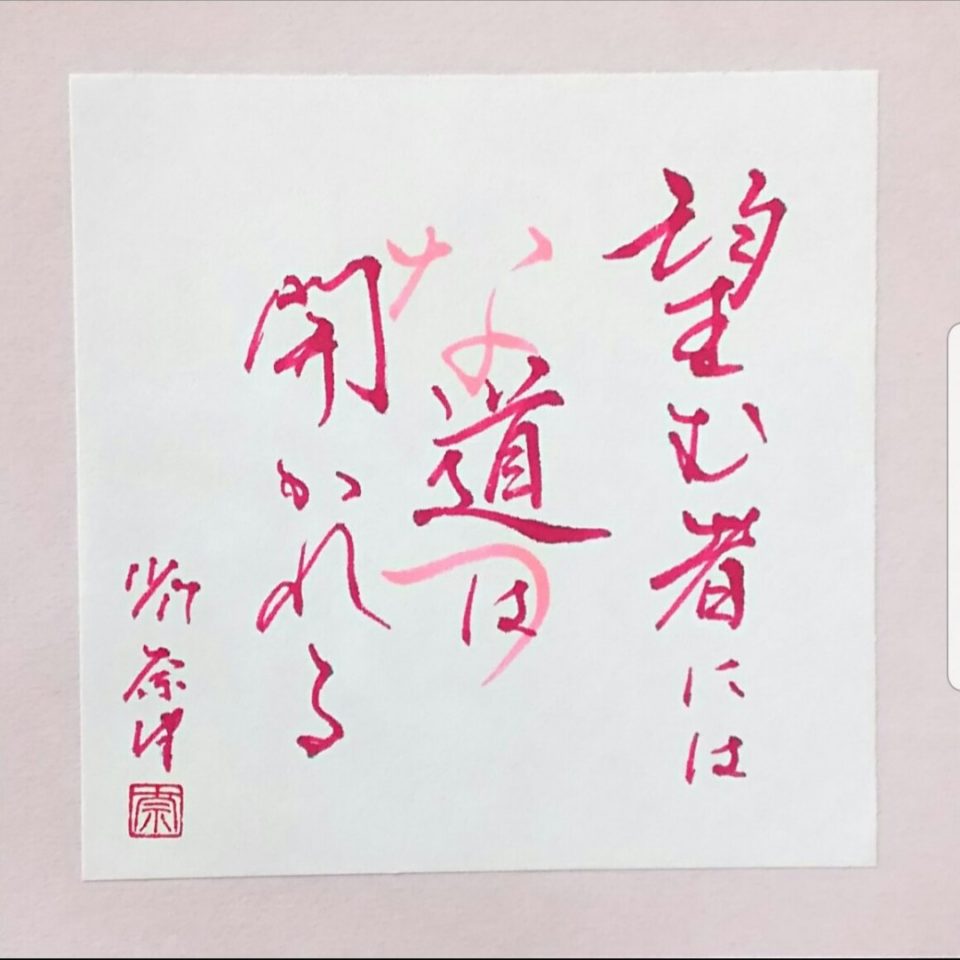 望む者には
なつ
道は
開かれる
奈津
奈